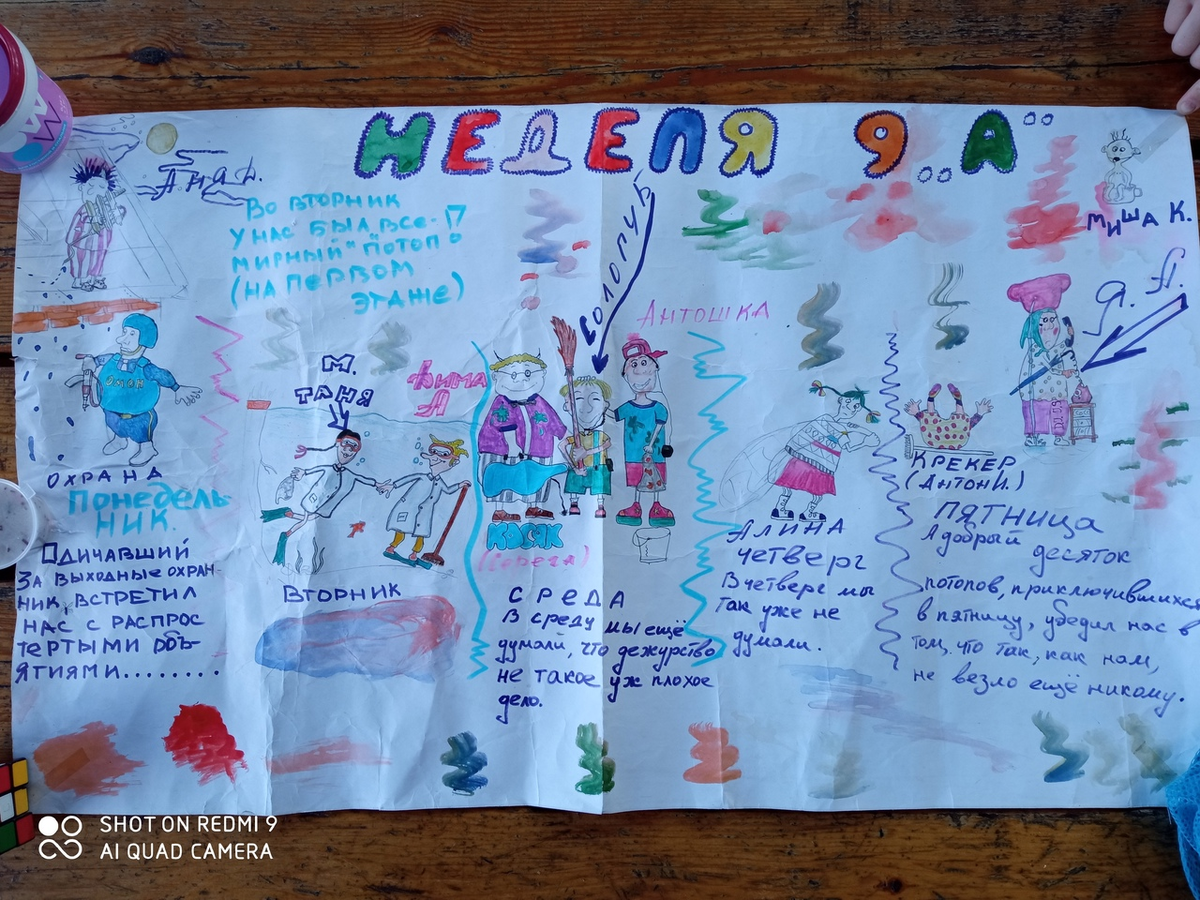 НЕДЕЛЯ 9..А
Миша К.
Во вторник
у нас был все-
мирный потоп!?
(на первом
этаже)
Волопуб
Антошка
Я. А.
М.
Таня
Фима
А
ОМОН
Охрана
Понедель-
ник.
Одичавший
за выходные охран-
ник, встретил
нас с распрос
тертыми объ-
ятиями........
Вторник
Косяк
(Серега)
Среда
В среду мы ещё
думали, что дежурство
не такое уж плохое
дело.
Алина
Четверг
В четверг мы
так уже не
думали.
Крекер
(Антон И.)
Пятница
А добрый десяток
потопов, приключившихся
в пятницу, убедил нас в
том, что так, как нам,
не везло ещё никому.
SHOT ON REDMI 9
AI QUAD CAMERA